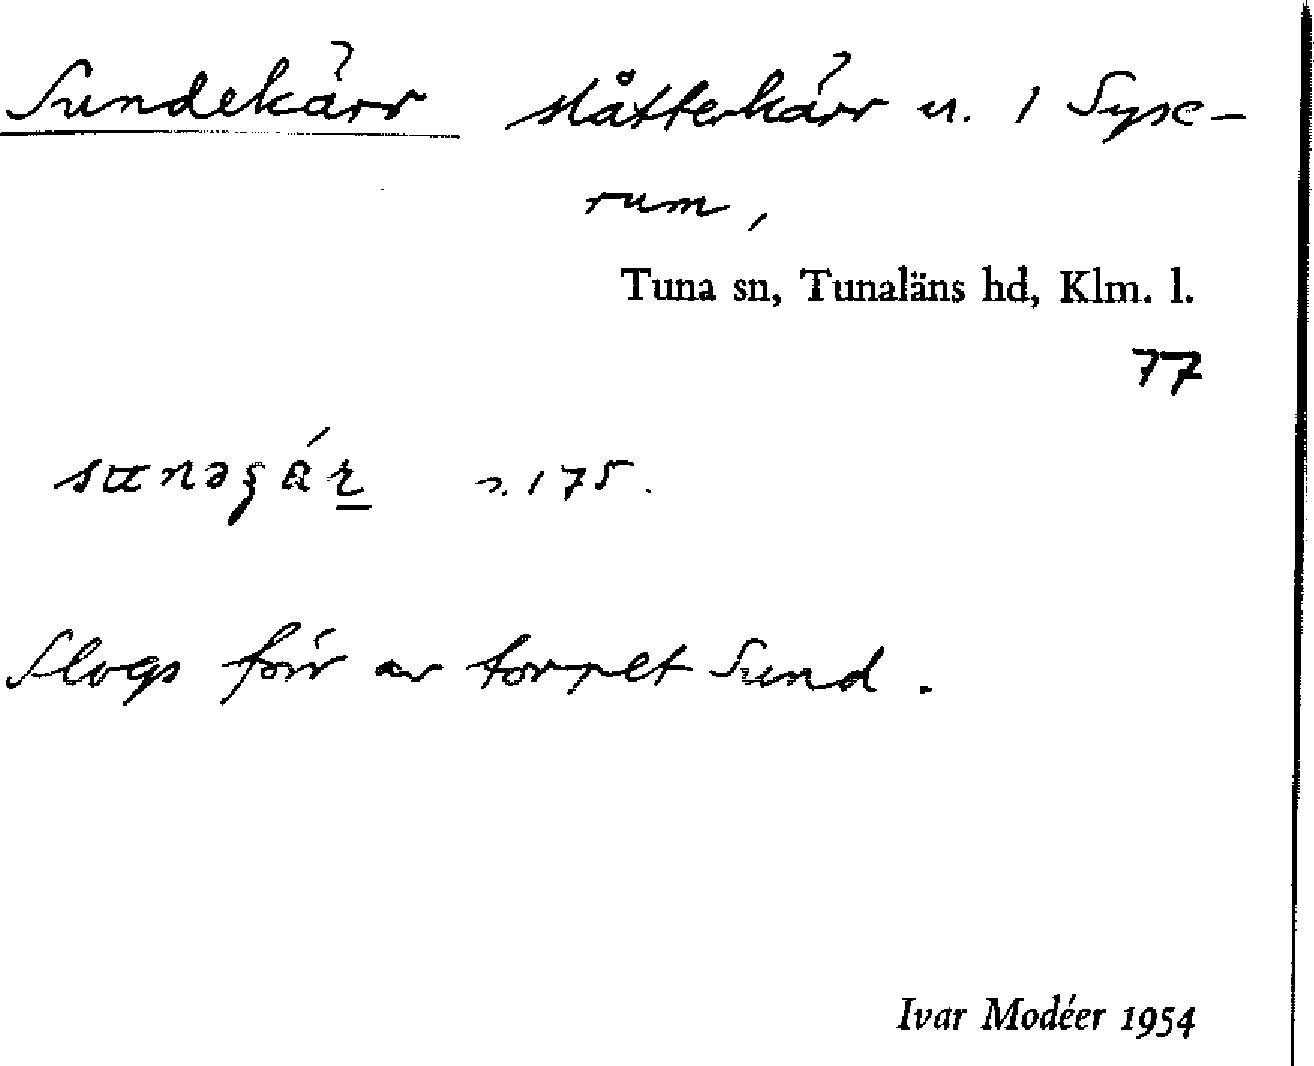 Sundekärr slåtterkärr u. 1 Syse-
rum,
Tuna sn, Tunaläns hd, Klm. l.
77
s. 175.
Slogs förr av torpet Sund.
Ivar Modéer 1954